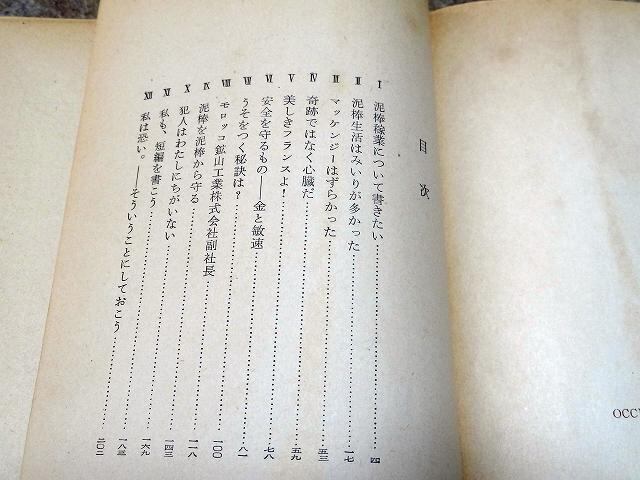 目次
I 泥棒稼業について書きたい……四
II 泥棒生活はみいりが多かった……一七
III マッケンジーはずらかった……五三
IV 奇跡ではなく心臓だ……五九
V 美しきフランスよ!……七八
VI 安全を守るもの――金と敏速……八一
VII うそをつく秘訣は?……一〇〇
VIII モロッコ鉱山工業株式会社副社長……一一八
IX 泥棒を泥棒から守る……一四三
X 犯人はわたしにちがいない……一六九
XI 私も、短編を書こう……一八三
XII 私は恐い。――そういうことにしておこう……二〇二